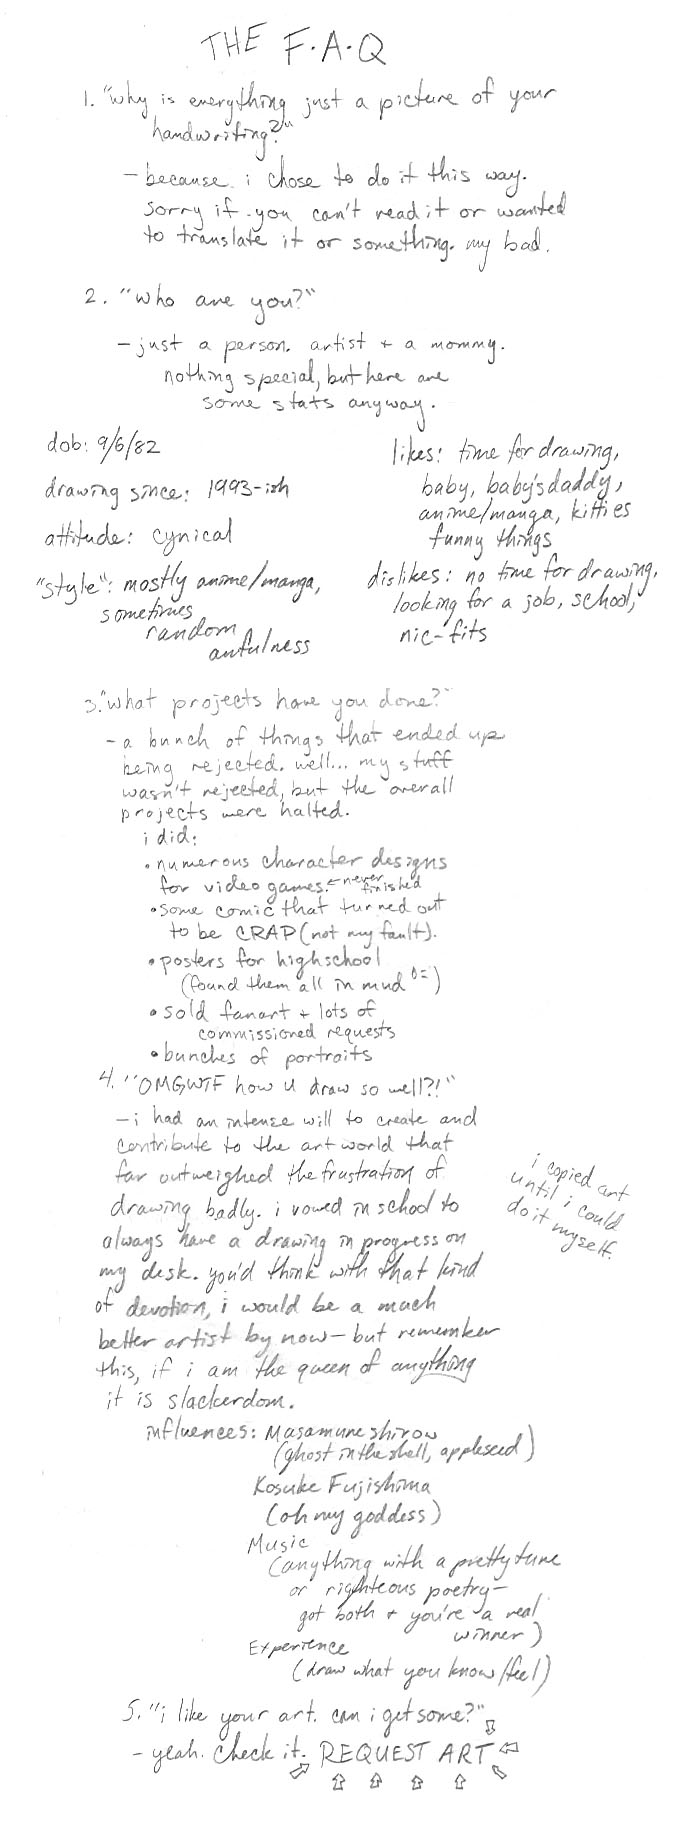 THE F.A.Q
1. "why is everything just a picture of your
handwriting?"
- because i chose to do it this way.
sorry if you can't read it or wanted
to translate it or something. my bad.
2. "who are you?"
- just a person. artist + a mommy.
nothing special, but here are
some stats anyway.
dob: 9/6/82
drawing since: 1993-ish
attitude: cynical
"style": mostly anime/manga,
sometimes
random
awfulness
likes: time for drawing,
baby, baby's daddy,
anime/manga, kitties
funny things
dislikes: no time for drawing,
looking for a job, school,
nic-fits
3. "what projects have you done?"
- a bunch of things that ended up
being rejected. well... my stuff
wasn't rejected, but the overall
projects were halted.
i did:
• numerous character designs
for video games. ← never finished
• some comic that turned out
to be CRAP (not my fault).
• posters for highschool
(found them all in mud D=)
• sold fanart + lots of
commissioned requests
• bunches of portraits
4. "OMGWTF how u draw so well?!"
- i had an intense will to create and
contribute to the art world that
far outweighed the frustration of
drawing badly. i vowed in school to
always have a drawing in progress on
my desk. you'd think with that kind
of devotion, i would be a much
better artist by now - but remember
this, if i am the queen of anything
it is slackerdom.
i copied art
until i could
do it myself.
influences: Masamune shirow
(ghost in the shell, appleseed)
Kosuke Fujishima
(oh my goddess)
Music
(anything with a pretty tune
or righteous poetry-
got both + you're a real
winner)
Experience
(draw what you know/feel)
5. "i like your art. can i get some?"
- yeah. check it. REQUEST ART